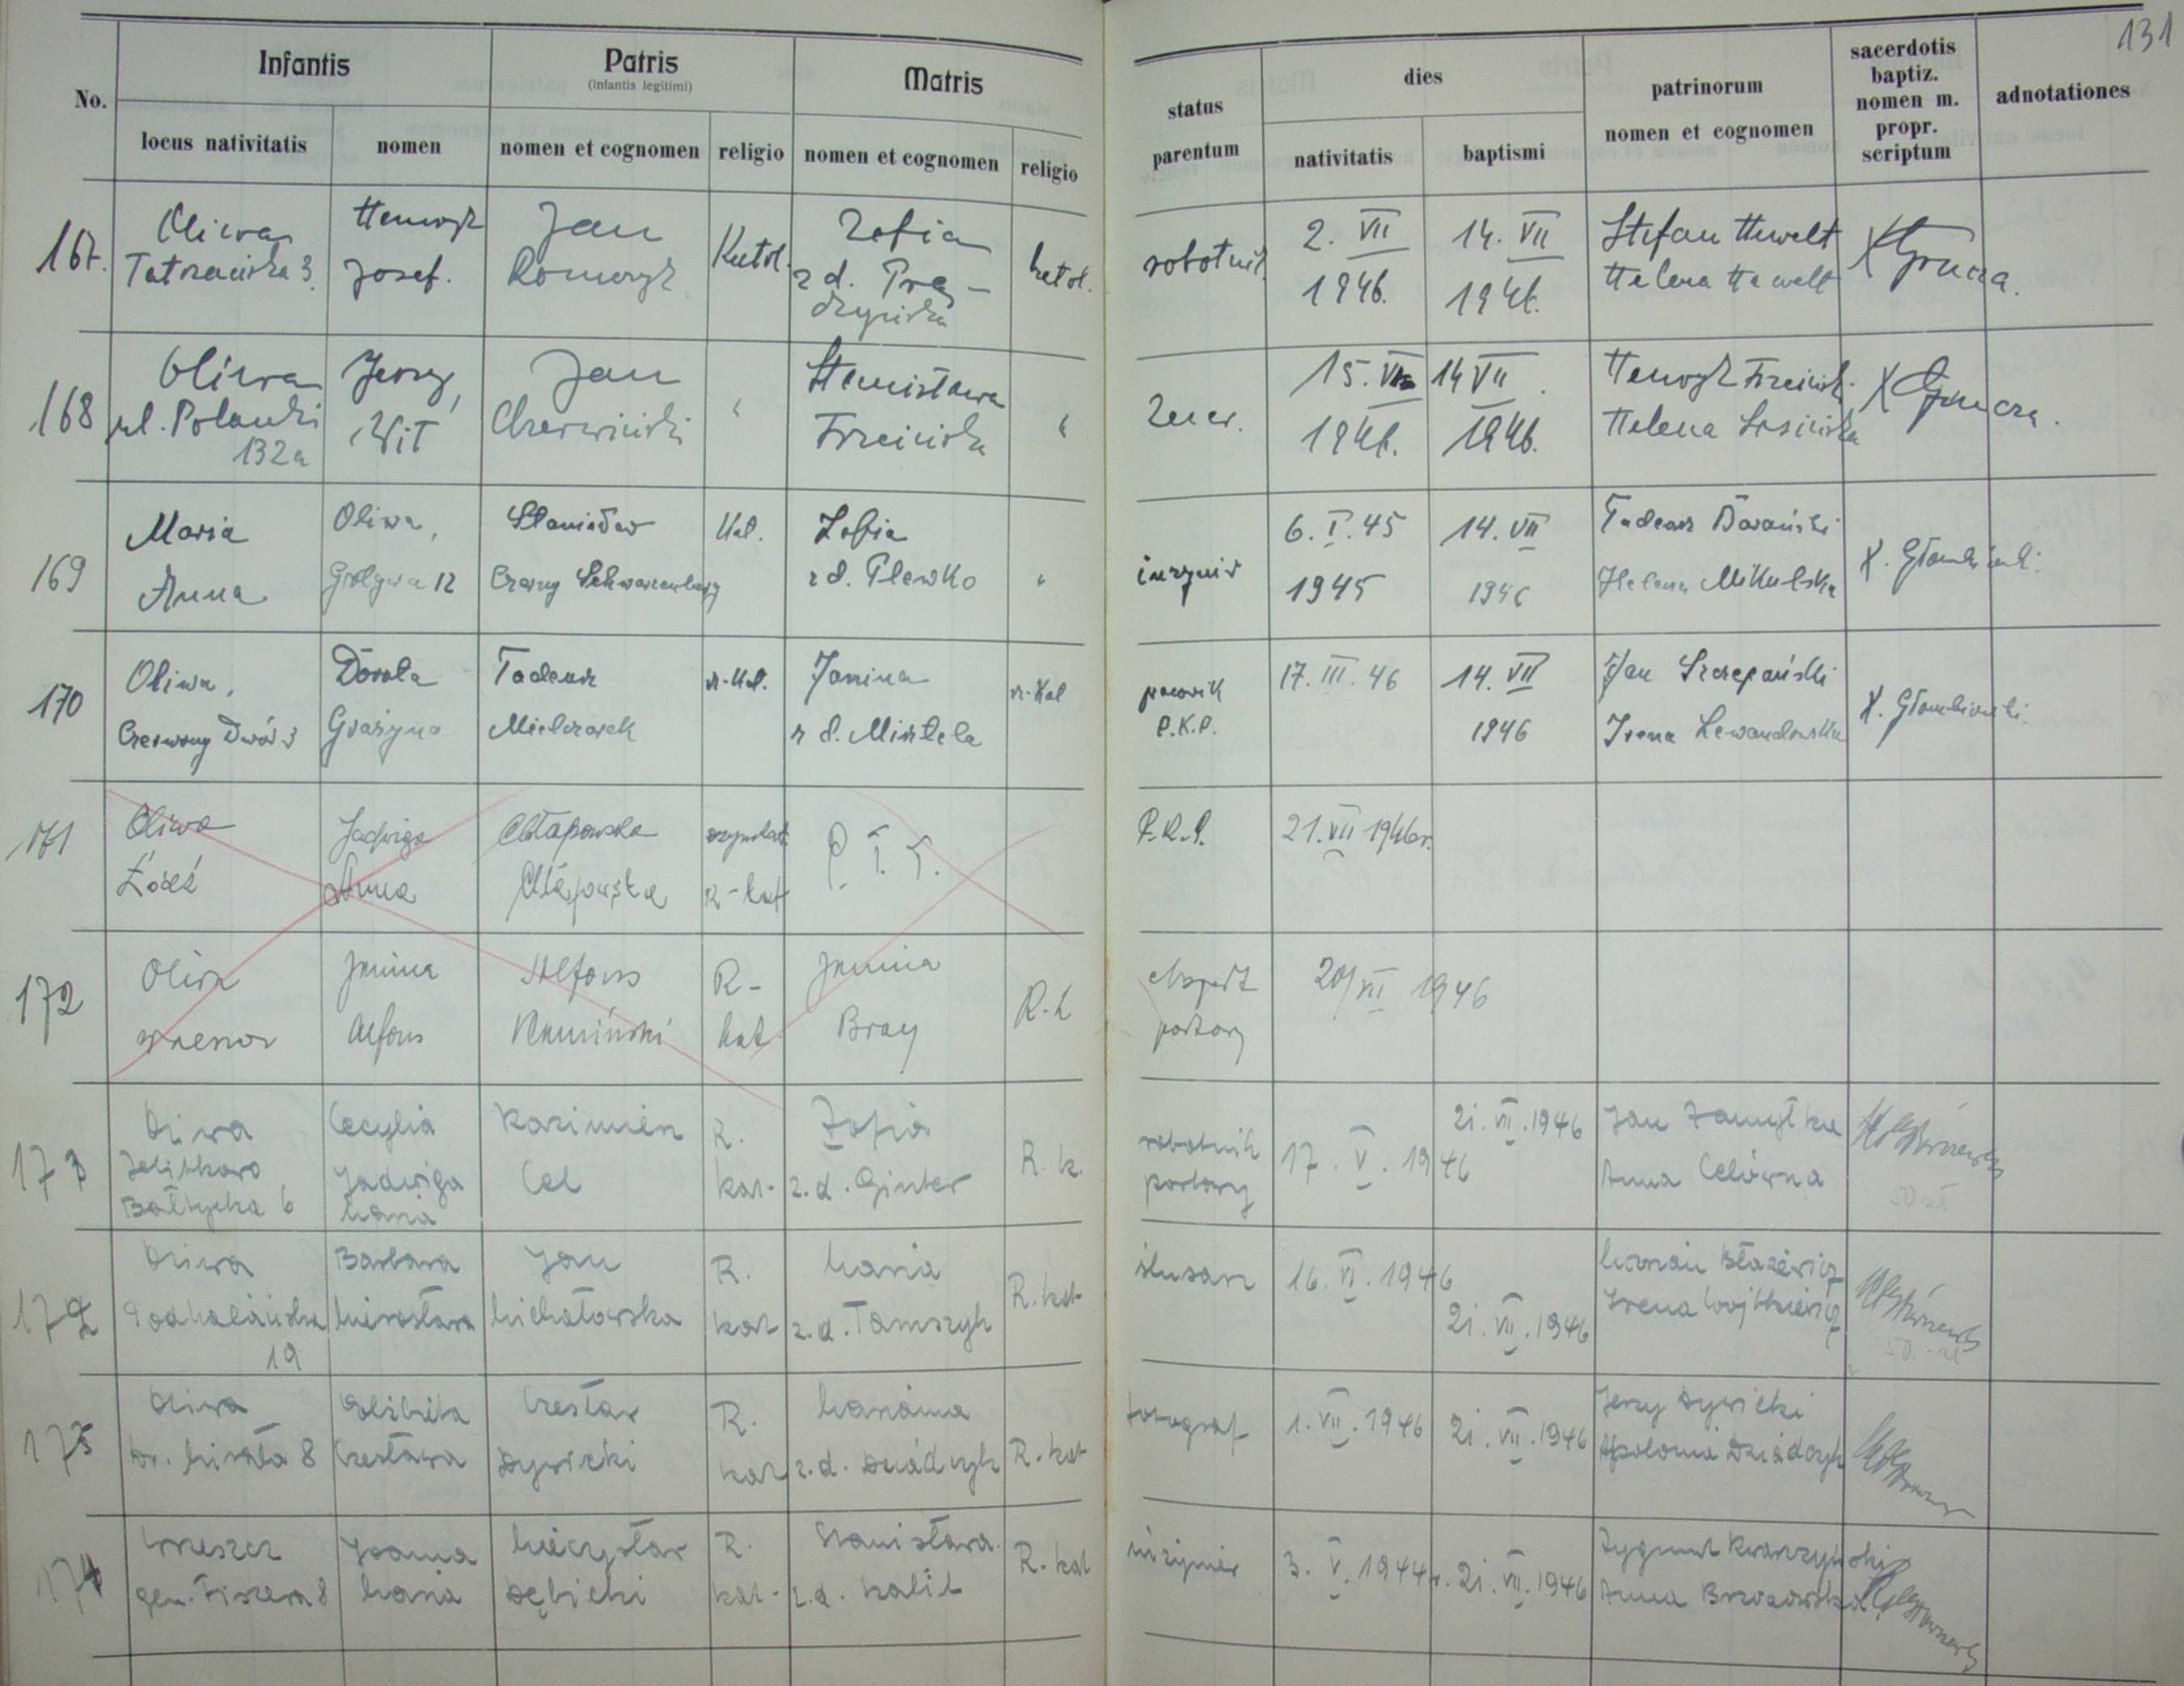 131
Infantis
Patris
(infantis legitimi)
Matris
No.
locus nativitatis
nomen
nomen et cognomen
religio
nomen et cognomen
religio
status
parentum
dies
nativitatis
baptismi
patrinorum
nomen et cognomen
sacerdotis
baptiz.
nomen m.
propr.
scriptum
adnotationes
167.
Oliwa
Tatrzańska 3.
Henryk
Josef.
Jan
Romczyk
Katol.
Zofia
z d.
katol.
robotnik
2. VII
1946.
14. VII
1946.
Stefan Hewelt
Helena Hewelt
X Grucza.
168
Oliwa
ul. Polanki
132a
Jerzy,
Wit
Jan
Czerwiński
"
Stanisława
Trzcińska
"
Zecer.
15. VII
1946.
14 VII
1946.
Henryk Trzciński
Helena
X Grucza.
169
Maria
Anna
Oliwa,
Grotgera 12
Stanisław
Czarny Schwarzenberg
Kat.
Zofia
z d. Plewko
"
inżynier
6. I. 45
1945
14. VII
1946
Tadeusz Barański
Helena Mikulska
X. Głombiewski.
170
Oliwa,
Czerwony Dwór 3
Dorota
Grażyna
Tadeusz
Mielczarek
r-kat.
Janina
z d. Misztela
r-Kat
pracownik
P.K.P.
17. III. 46
14. VII
1946
Jan Szczepański
Irena Lewandowska
X. Głombiewski.
171
Oliwa
Łódź
Jadwiga
Anna
Chłapowska
Chłapowska
rzymkat.
R-kat
P. T. T.
P.K.P.
21. VII 1946r.
172
Oliwa
Janina
Alfons
Alfons
Kamiński
R-
kat
Janina
Bray
R.k
portowy
20/VII 1946
173
Oliwa
Jelitkowo
Bałtycka 6
Cecylia
Jadwiga
Maria
Kazimierz
Cel
R.
kat.
Zofia
z.d. Ginter
R. k.
robotnik
portowy
17. V. 1946
21. VII. 1946
Jan
Anna Celówna
172
Oliwa
Podhalańska
19
Barbara
Mirosława
Jan
Michałowska
R.
kat
Maria
z.d. Tomszyk
R. kat
ślusarz
16. VI. 1946
21. VII. 1946
Marian Błażewicz
Irena Wojtkiewicz
173
Oliwa
8
Elżbieta
Czesława
Czesław
Dywicki
R.
kat
Marianna
z.d. Dziadczyk
R. kat
fotograf
1. VII. 1946
21. VII. 1946
Jerzy Dywicki
Apolonia Dziadczyk
174
Wrzeszcz
gen. Fiszera 8
Joanna
Maria
Mieczysław
Dębicki
R.
kat.
Stanisława
z.d. Kalit
R. kat
inżynier
3. V. 1944r.
21. VII. 1946
Zygmunt
Anna Brzozowska